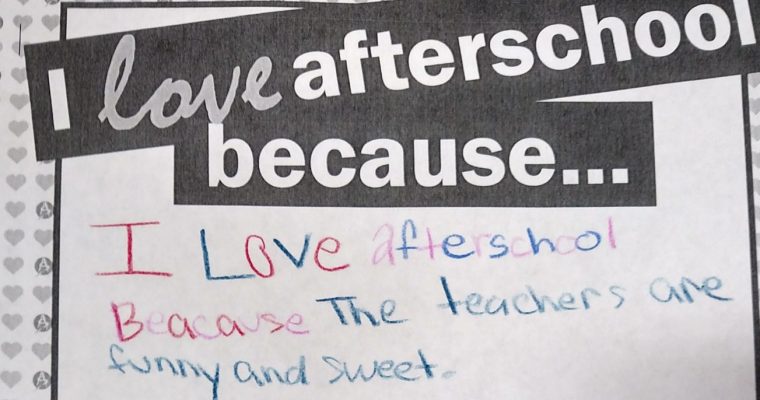 I love afterschool
because...
I Love afterschool
Beacause The teachers are
funny and sweet.